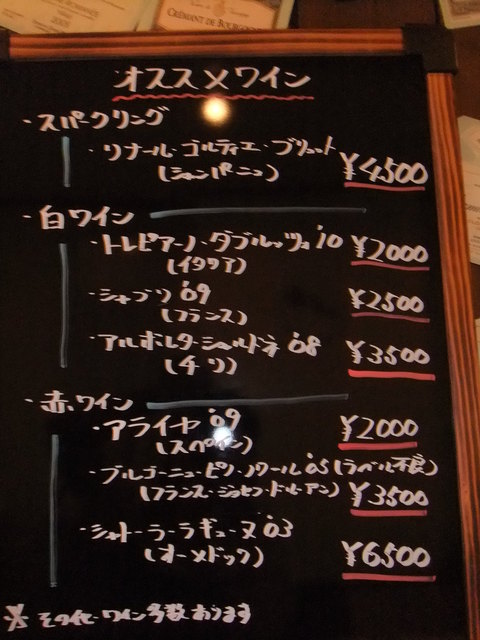 CRÉMANT DE BOURGOGNE
オススメワイン
・スパークリング
・リナール・ゴルティエ・ブリュット
(シャンパーニュ) ¥4,500
・白ワイン
・トレビアーノ・ダブルッツォ '10 ¥2000
(イタリア)
・シャブリ '09 ¥2500
(フランス)
・アルボレタ・シャルドネ '08 ¥3500
(チリ)
・赤ワイン
・アライヤ '09 ¥2000
(スペイン)
・ブルゴーニュ・ピノ・ノワール '05 (ラベル不良)
(フランス・ジョセフ・ドルーアン) ¥3500
・シャトー・ラ・ラギューヌ '03
(オー・メドック) ¥6,500
※ その他・ワイン多数あります